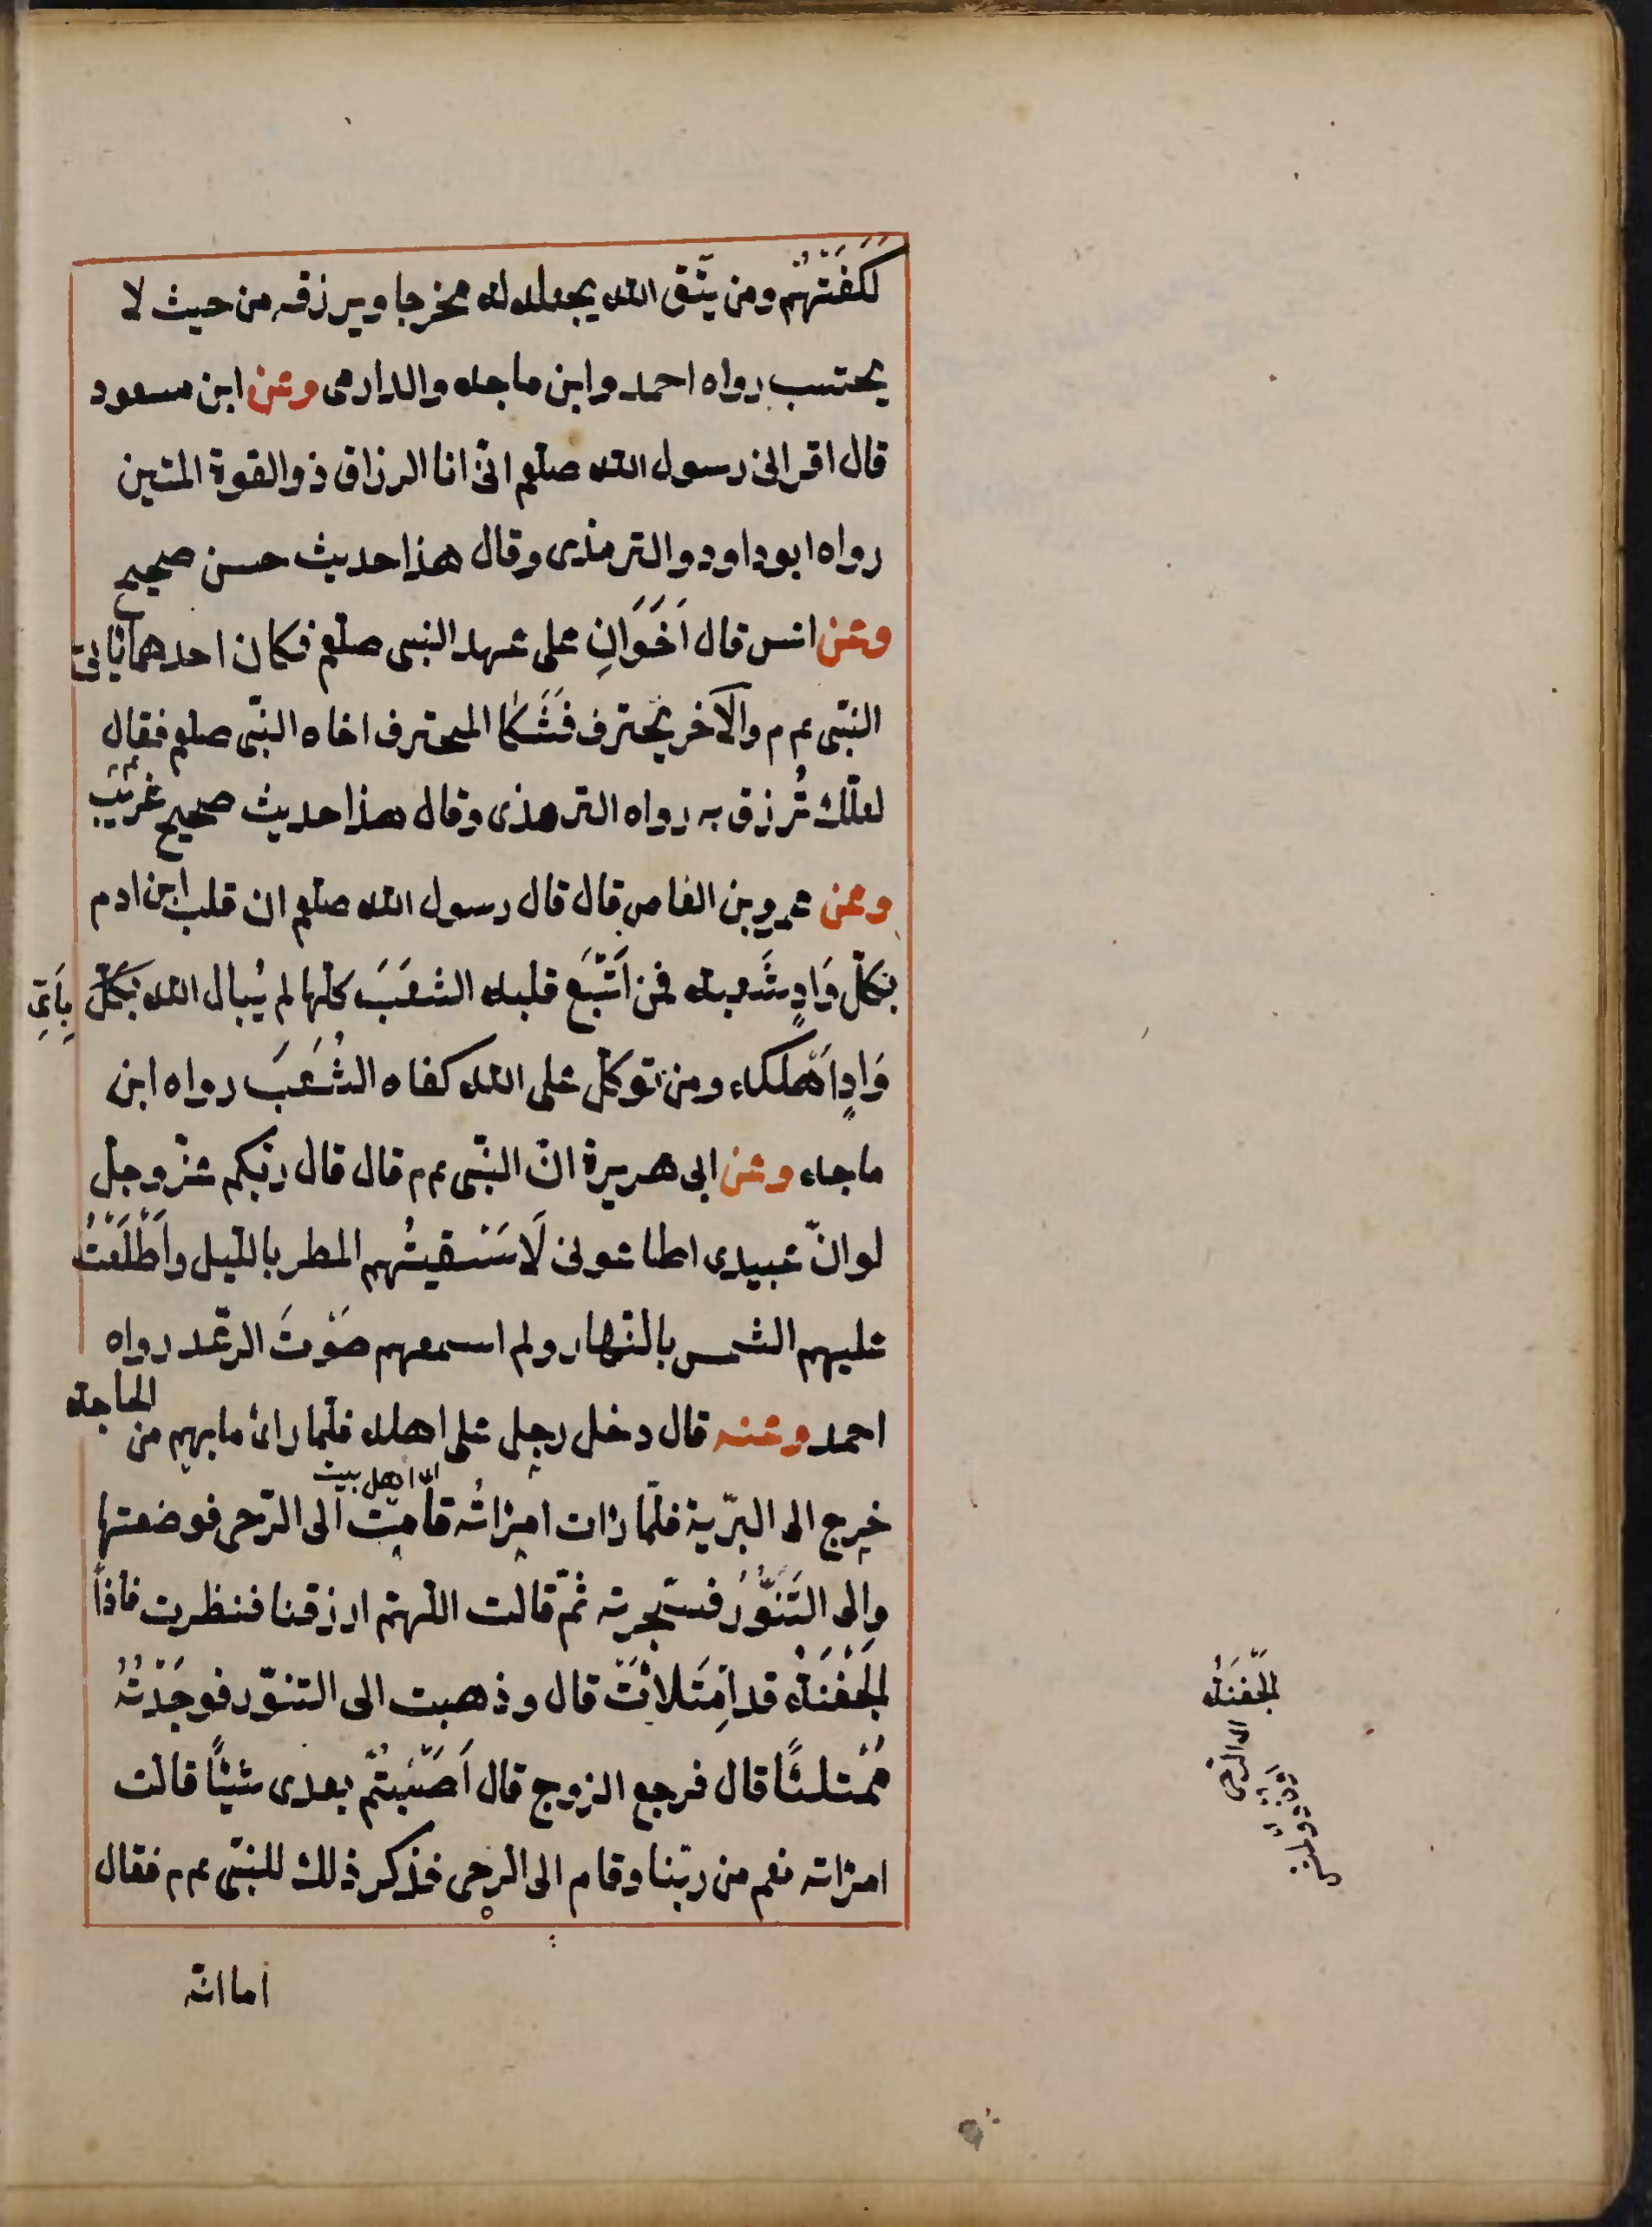 لَكَفَتْهُم ومن يتّق الله يجعل له مخرجا ويرزقه من حيث لا
يحتسب رواه احمد وابن ماجه والدارمى وعن ابن مسعود
قال اقرانى رسول الله صلعم انّى انا الرزاق ذو القوة المتين
رواه ابو داود والترمذى وقال هذا حديث حسن صحيح
وعن انس قال اَخَوَانِ على عهد النبى صلعم فكان احدهما ياتى
النبّى عم م والآخر يحترف فَشَكَا المحترف اخاه النبّى صلعم فقال
لعلّك تُرزق به رواه الترمذى وقال هذا حديث صحيح غريب
وعن عمرو بن العاص قال قال رسول الله صلعم ان قلب ابن ادم
بكلّ وَادٍ شَعبة فمن اَتْبَع قلبه الشعَبَ كلّها لم يُبال الله بكلّ
بِاَىِّ
وَادٍ اَهلكه ومن توكّل على الله كفاه الشُعَبَ رواه ابن
ماجه وعن ابى هريرة انّ النبّى عم م قال قال ربّكم عزّ وجلّ
لو انّ عبيدى اطاعونى لَاَسَسقيتُهم المطر بالليل واَطْلَعْتُ
عليهم الشمس بالنّهار ولم اسمعهم صَوْتَ الرّعد رواه
احمد وعنه قال دخل رجل على اهله فلّما راى ما بهم من الحاجة
خرج الى البرّية فلّما رَات امرَاتُه قامت الى الرّحى فوضعتها
اى اهل بيت
والى التَنَّوُر فسجرته ثمّ قالت اللّهمّ ارزقنا فنظرت فاذاً
الجَفْنَةُ قد اِمْتَلاَتَ قال وذهبت الى التنوّر فوجَدْتُهُ
مُمْتلئًا قال فرجع الزوج قال اَصَبْتُم بعدى شيئًا قالت
امرَاته نعم من ربّنا وقام الى الرحى فذكر ذلك للنبّى عم م فقال
اما انّه
الجَفنَةُ
الى الرحى